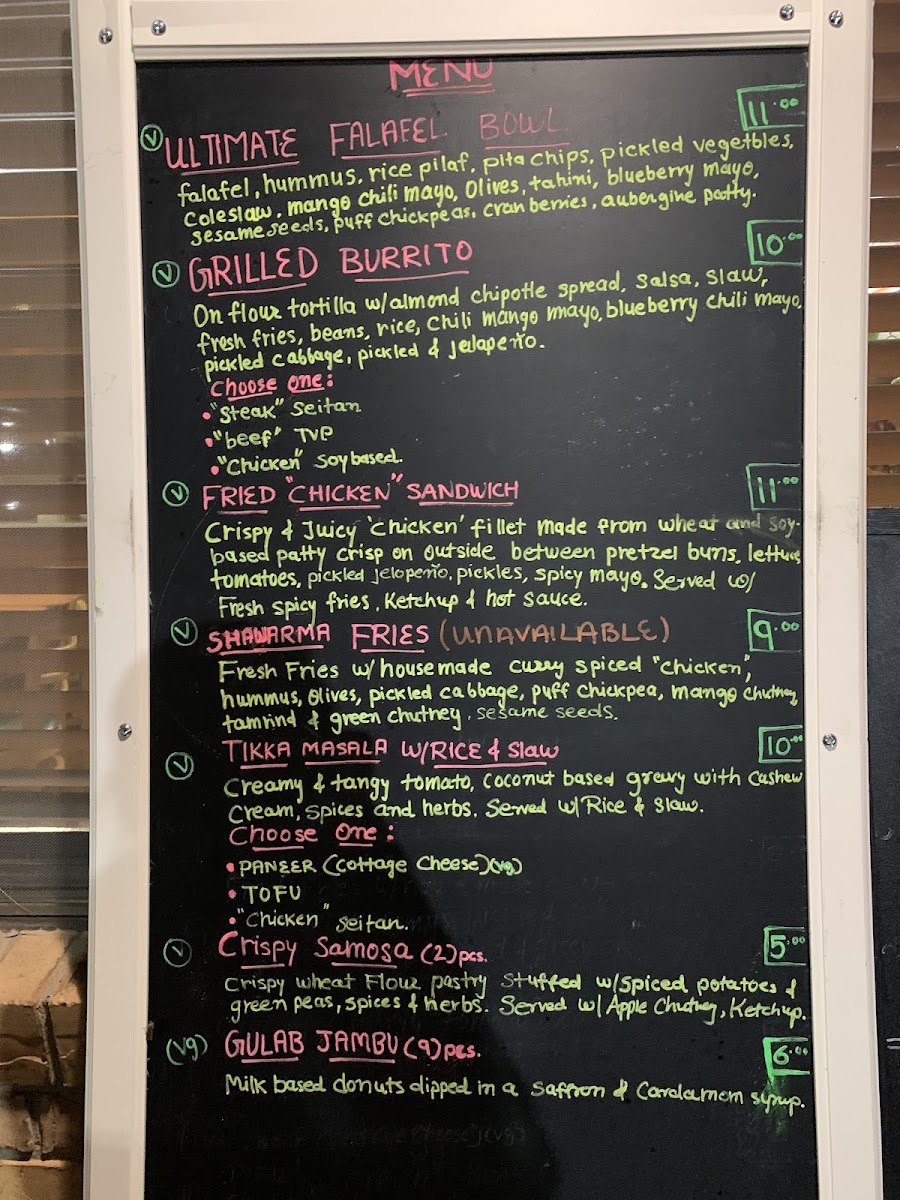 MENU
Ⓥ ULTIMATE FALAFEL BOWL 11.00
falafel, hummus, rice pilaf, pita chips, pickled vegetbles,
Coleslaw, mango chili mayo, Olives, tahini, blueberry mayo,
sesame seeds, puff chickpeas, cranberries, aubergine patty.
Ⓥ GRILLED BURRITO 10.00
On flour tortilla w/almond chipotle spread, Salsa, Slaw,
fresh fries, beans, rice, Chili mango mayo, blueberry chili mayo,
pickled cabbage, pickled & Jelapeño.
Choose One:
•"Steak" Seitan
•"beef" TVP
•"Chicken" Soybased.
Ⓥ FRIED "CHICKEN" SANDWICH 11.00
Crispy & Juicy 'Chicken' fillet made from wheat and soy-
based patty crisp on outside between pretzel buns, lettuce
tomatoes, pickled jelopeño, pickles, spicy mayo. Served w/
Fresh spicy fries, Ketchup & hot sauce.
Ⓥ SHAWARMA FRIES (UNAVAILABLE) 9.00
Fresh Fries w/ housemade curry spiced "chicken",
hummus, Olives, pickled cabbage, puff chickpea, mango chutney,
tamrind & green chutney, sesame seeds.
Ⓥ TIKKA MASALA W/RICE & Slaw 10.00
Creamy & tangy tomato, coconut based grevy with Cashew
Cream, spices and herbs. Served w/ Rice & Slaw.
Choose One:
•PANEER (Cottage Cheese)(vg)
•TOFU
•"Chicken" Seitan.
Ⓥ Crispy Samosa (2)pcs. 5.00
Crispy wheat Flour pastry Stuffed w/spiced potatoes &
green peas, spices & herbs. Served w/ Apple Chutney, Ketchup.
(vg) GULAB JAMBU (9)pcs. 6.00
Milk based donuts dipped in a Saffron & Cardamom syrup.